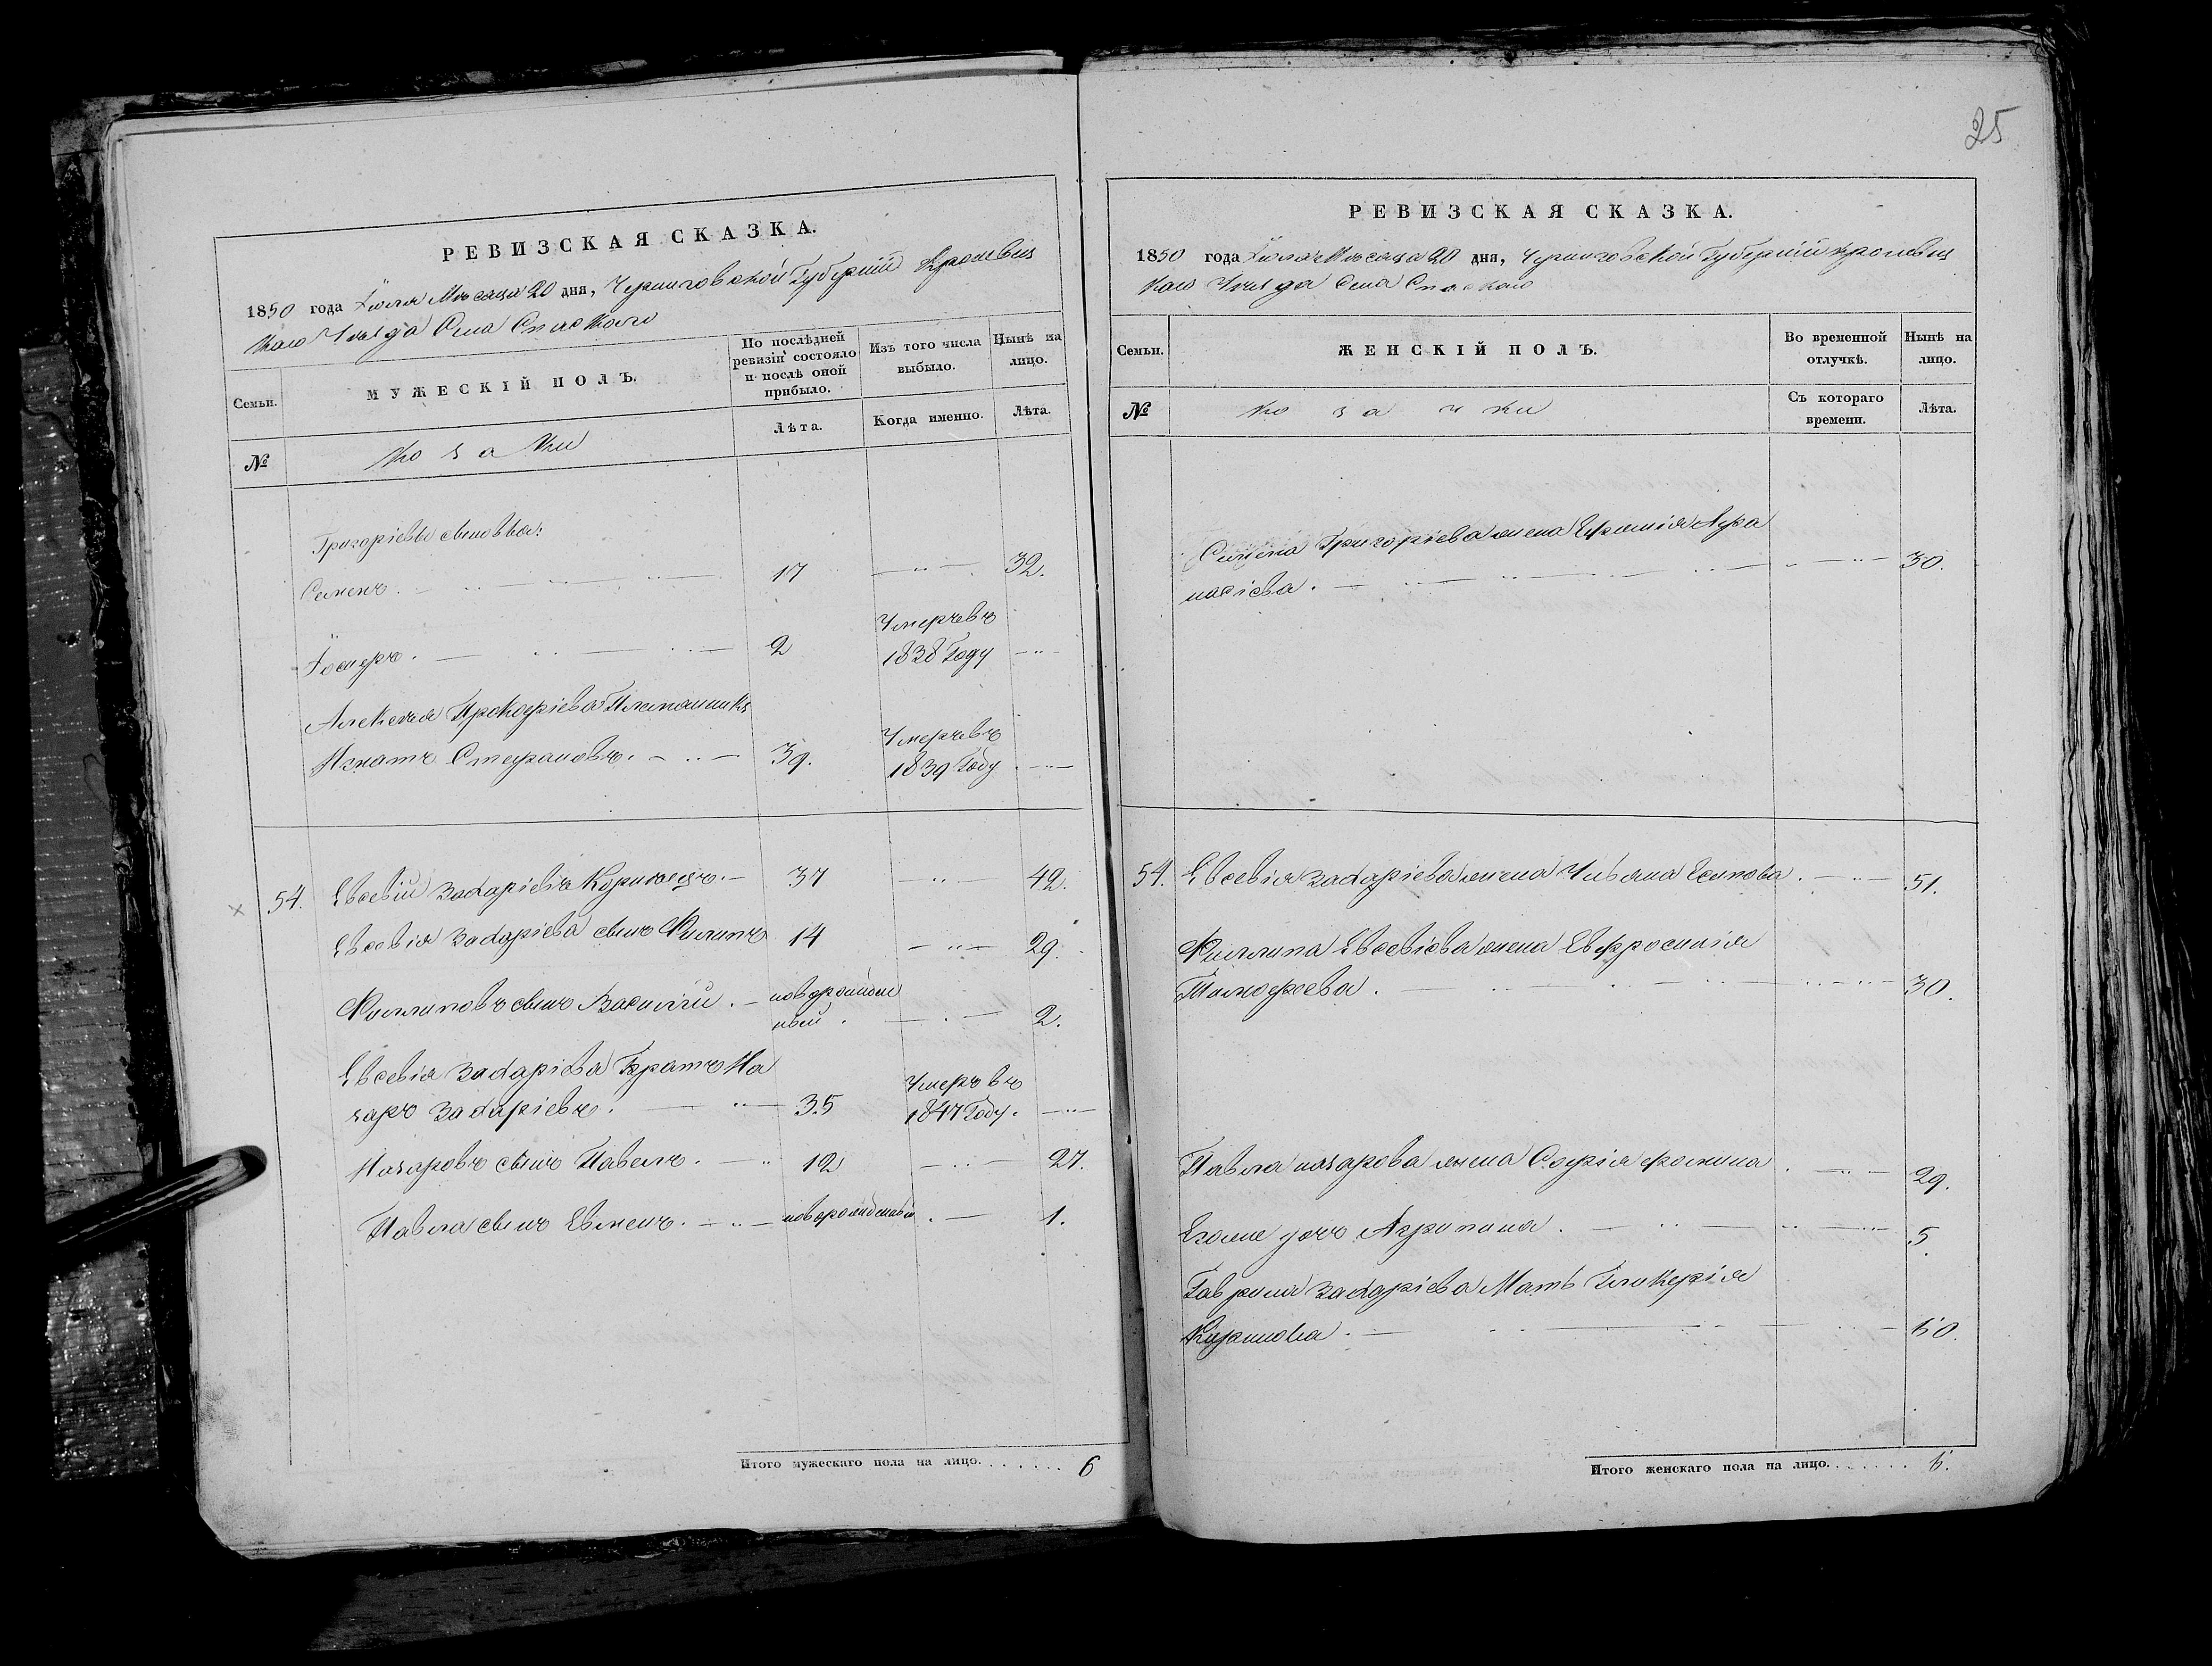 РЕВИЗСКАЯ СКАЗКА.
1850 года Іюля Мѣсяца 20 дня, Черниговской Губерніи Кролевец
каго Уѣзда Села Спаского
Семьи.
МУЖЕСКІЙ ПОЛЪ.
По послѣдней ревизіи состояло и послѣ оной прибыло.
Изъ того числа выбыло.
Нынѣ на лицо.
№
Козаки
Лѣта.
Когда именно.
Лѣта.
Григоріевы сыновья:
Семенъ. 17 32.
Іосифъ. 2 Умеръ въ 1838 Году
Алексѣя Прокофіева Племянникъ
Игнатъ Стефановъ. 39. Умеръ въ 1839 Году
54. Евсевій Захаріевъ 37 42.
Евсевія Захаріева сынъ Филипъ 14 29.
Филиповъ сынъ Василій. новорожден
ный. 2.
Евсевія Захаріева Братъ На
заръ Захаріевъ. 35 Умеръ въ 1847 Году.
Назаровъ сынъ Павелъ. 12 27.
Павла сынъ Евменъ. новорожденный 1.
Итого мужескаго пола на лицо. 6
25
РЕВИЗСКАЯ СКАЗКА.
1850 года Іюля Мѣсяца 20 дня, Черниговской Губерніи Кролевец
каго Уѣзда Села Спаского
Семьи.
ЖЕНСКІЙ ПОЛЪ.
Во временной отлучкѣ.
Нынѣ на лицо.
№
Козачки
Съ котораго времени.
Лѣта.
Семена Григоріева жена Афа
насіева. 30.
54. Евсевія Захаріева жена Ульяна Есипова. 51.
Филипа Евсевіева жена Евфросинія
Тимофеева. 30.
Павла Назарова жена Софія Фомина 29.
Ихъ дочь Агрипина. 5.
Гаврила Захаріева Мать Гликерія
60.
Итого женскаго пола на лицо. 6.